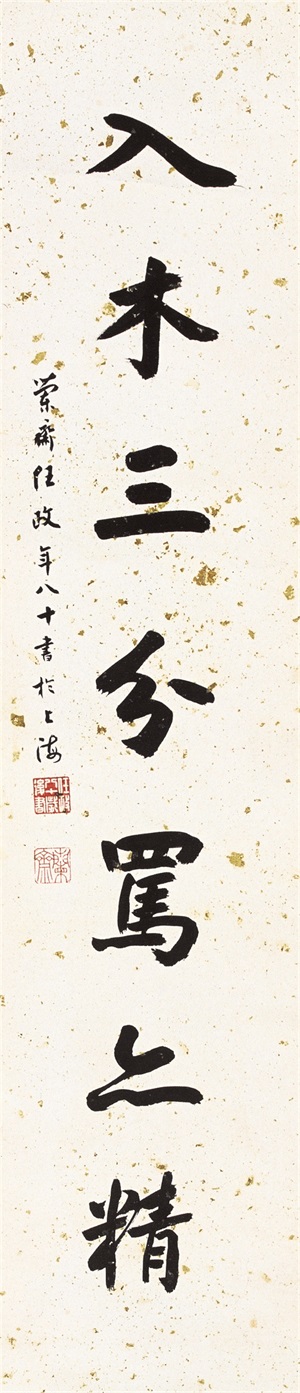 入木三分罵亦精
蘭齋任政年八十書於上海